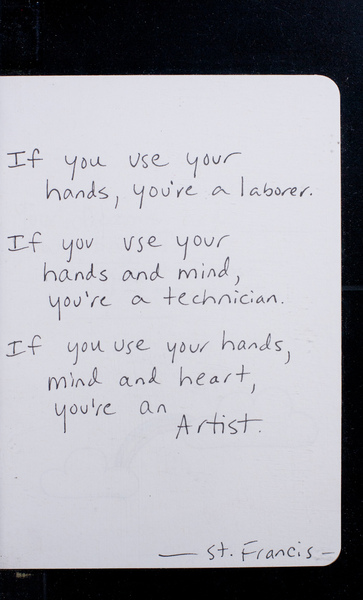 If you use your
hands, you're a laborer.
If you use your
hands and mind,
you're a technician.
If you use your hands,
mind and heart,
you're an
Artist.
— St. Francis —